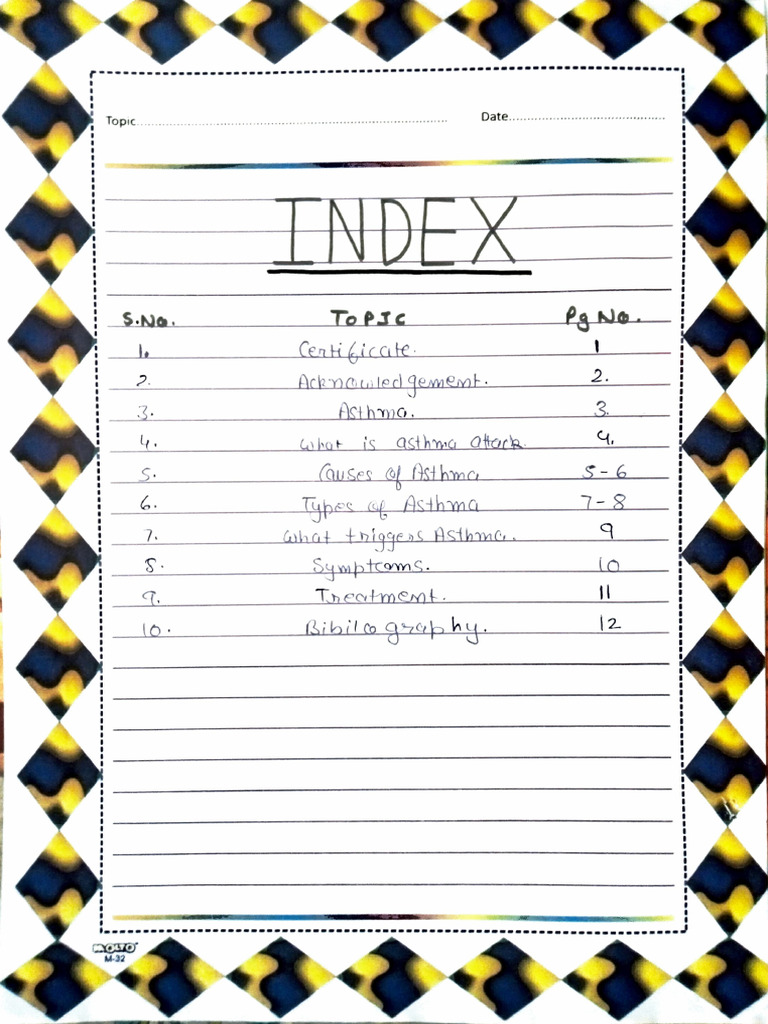 Topic.......... Date..........
INDEX
S.No. TOPIC Pg No.
1. Certificate. 1
2. Acknowledgement. 2.
3. Asthma. 3.
4. What is asthma attack. 4.
5. Causes of Asthma 5-6
6. Types of Asthma 7-8
7. What triggers Asthma. 9
8. Symptoms. 10
9. Treatment. 11
10. Bibilography. 12
MOLTO
M-32